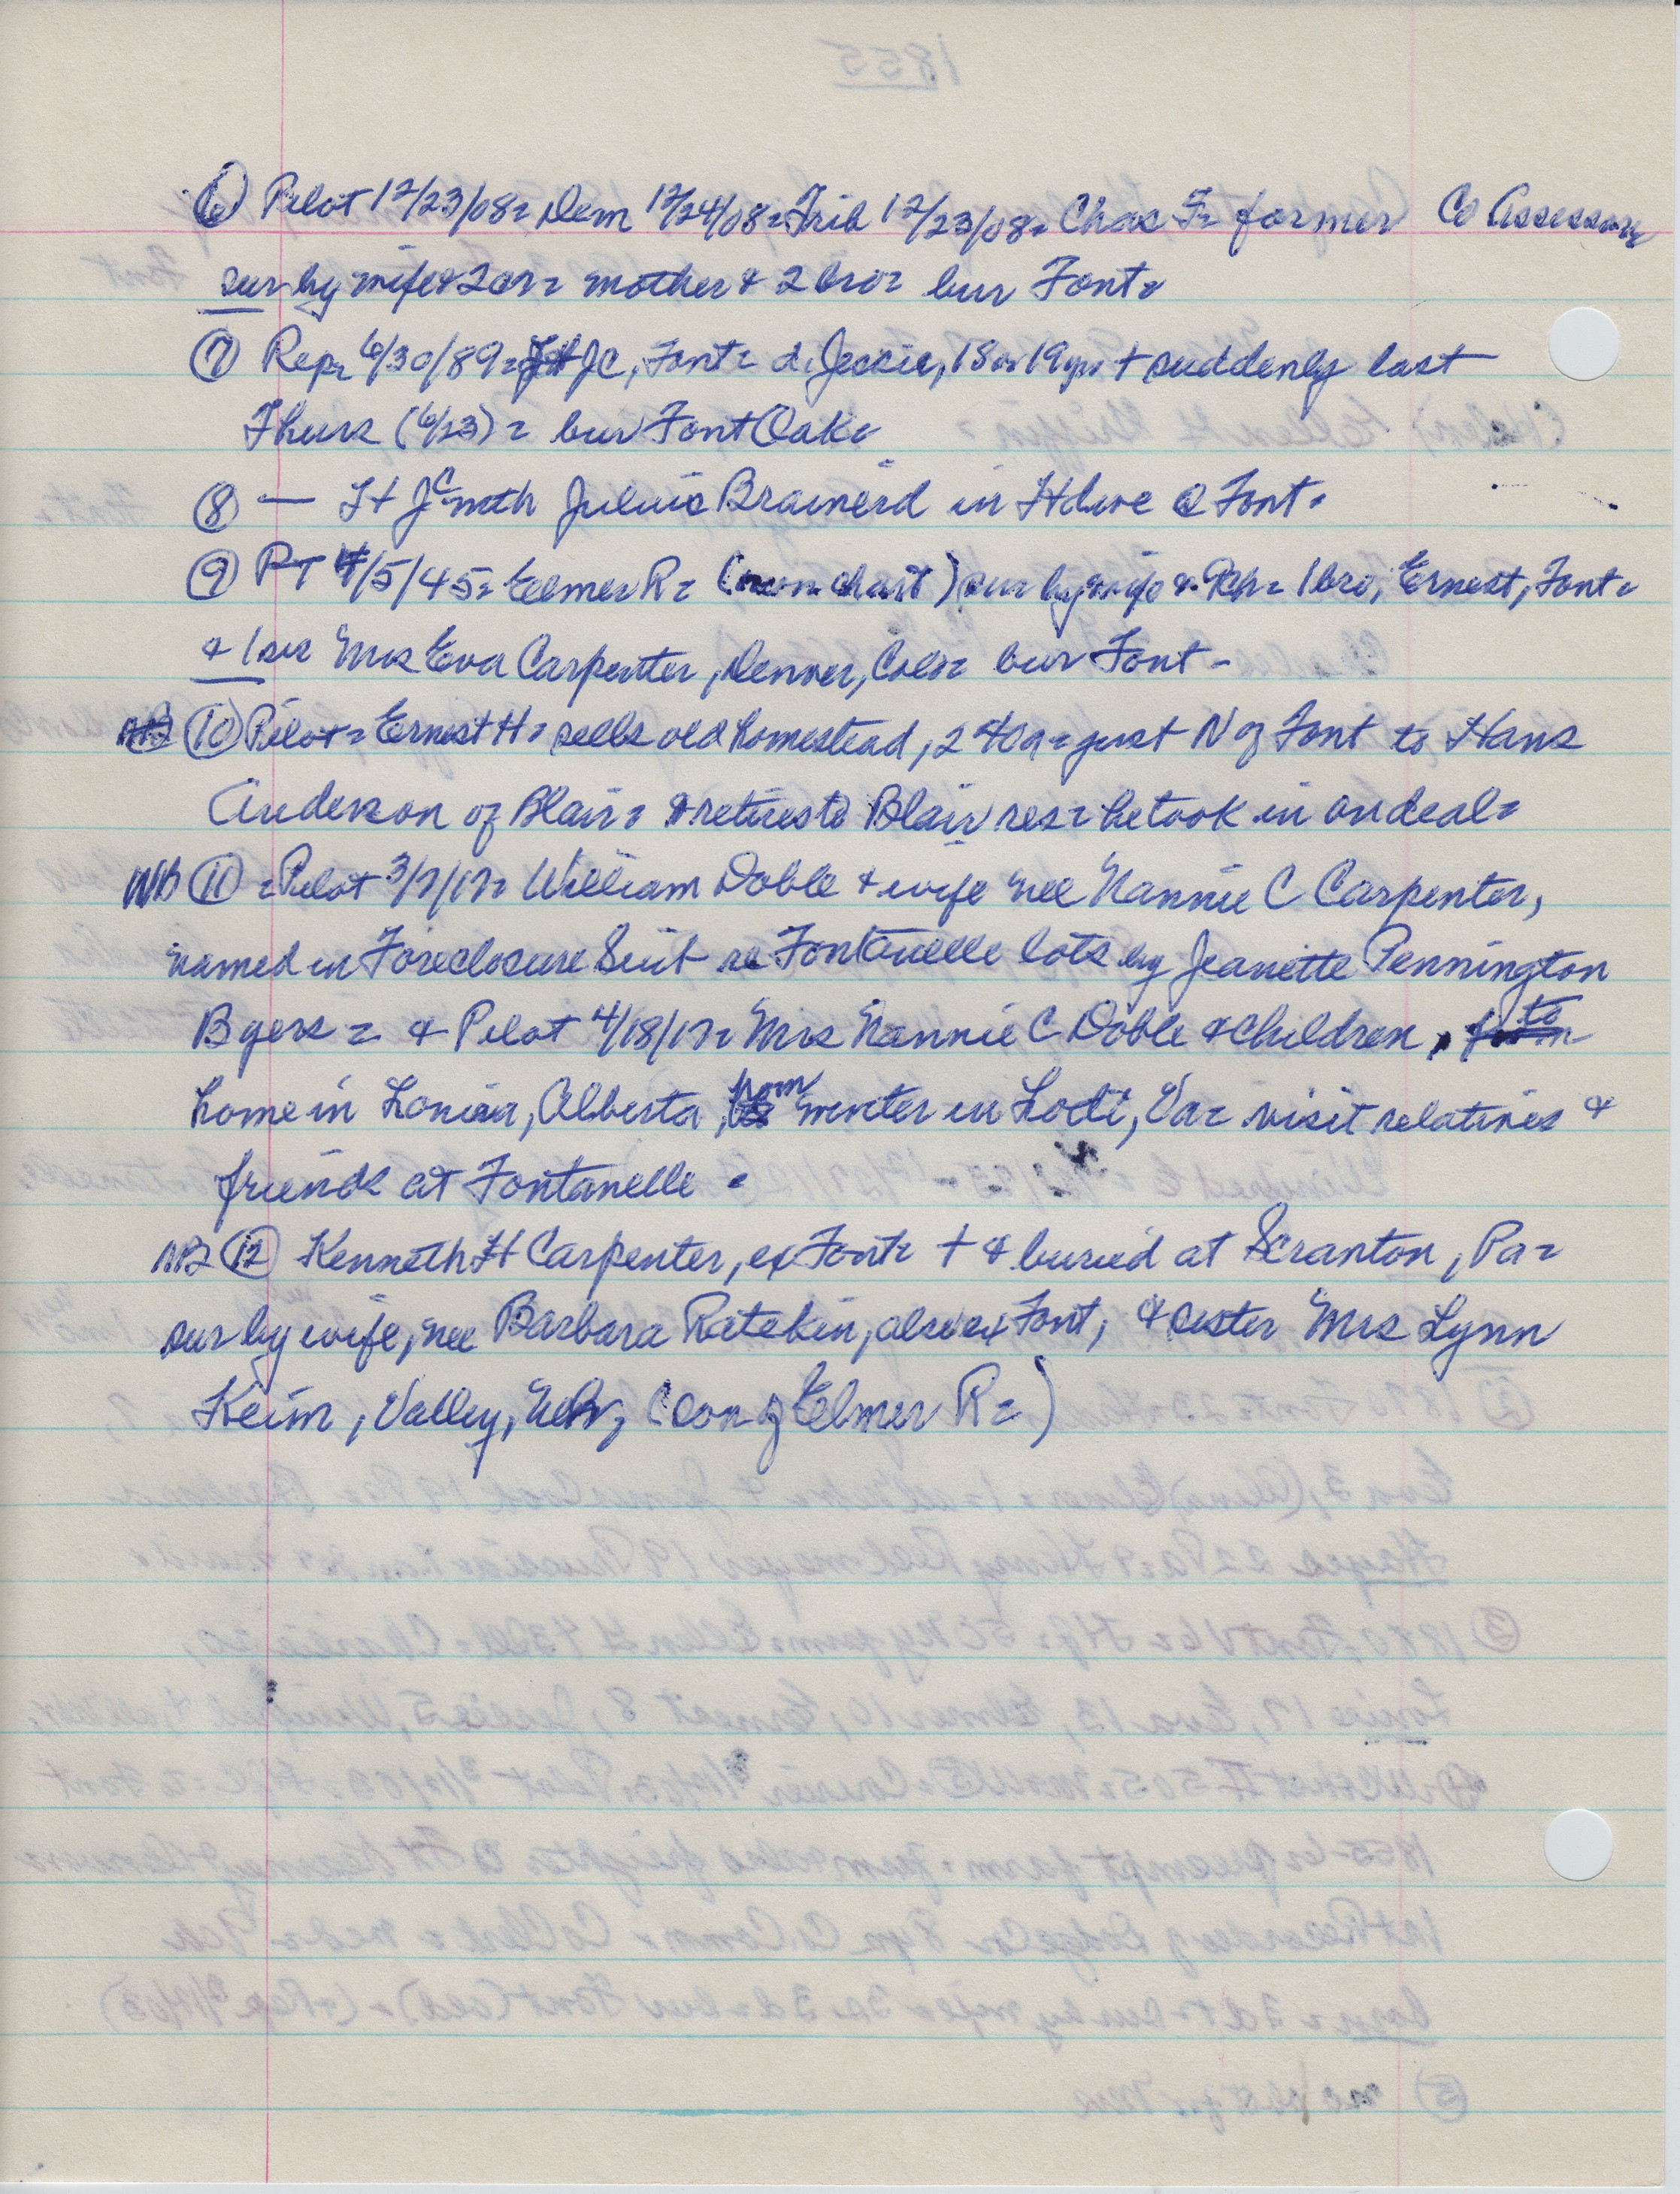 ⑥ Pilot 12/23/08= Dem 12/24/08= Trib 12/23/08= Chas F= former Co Assessor=
sur by wife & 2 = mother & 2 bro= bur Font=
⑦ Rep= 6/30/89= JC, Font= d. Jessie, 18 or 19 yrs + suddenly last
Thurs (6/23) = bur Font Oak=
⑧ — H JC with Julius Brainerd in Hdwe @ Font=
⑨ PT 4/5/45= Elmer R= ( chart) sur by wife & 9ch= 1 bro, Ernest, Font=
& 1 sis Mrs Eva Carpenter, Denver, Colo= bur Font-
⑩ Pilot= Ernest H= sells old homestead, 240a= just N of Font to Hans
Anderson of Blair= & retires to Blair res= he took in on deal=
NB ⑪ =Pilot 3/7/17= William Doble & wife nee Nannie C Carpenter,
named in Foreclosure Suit re Fontanelle lots by Jeanette Pennington
Byers = & Pilot 4/18/17= Mrs Nannie C Doble & children, to
home in , Alberta, from winter in Lodi, Va= visit relatives &
friends at Fontanelle =
NB ⑫ Kenneth H Carpenter, ex Font= + & buried at Scranton, Pa=
sur by wife, nee Barbara Ratekin, also ex Font, & sister Mrs Lynn
Keim, Valley, Nebr, (son of Elmer R=)